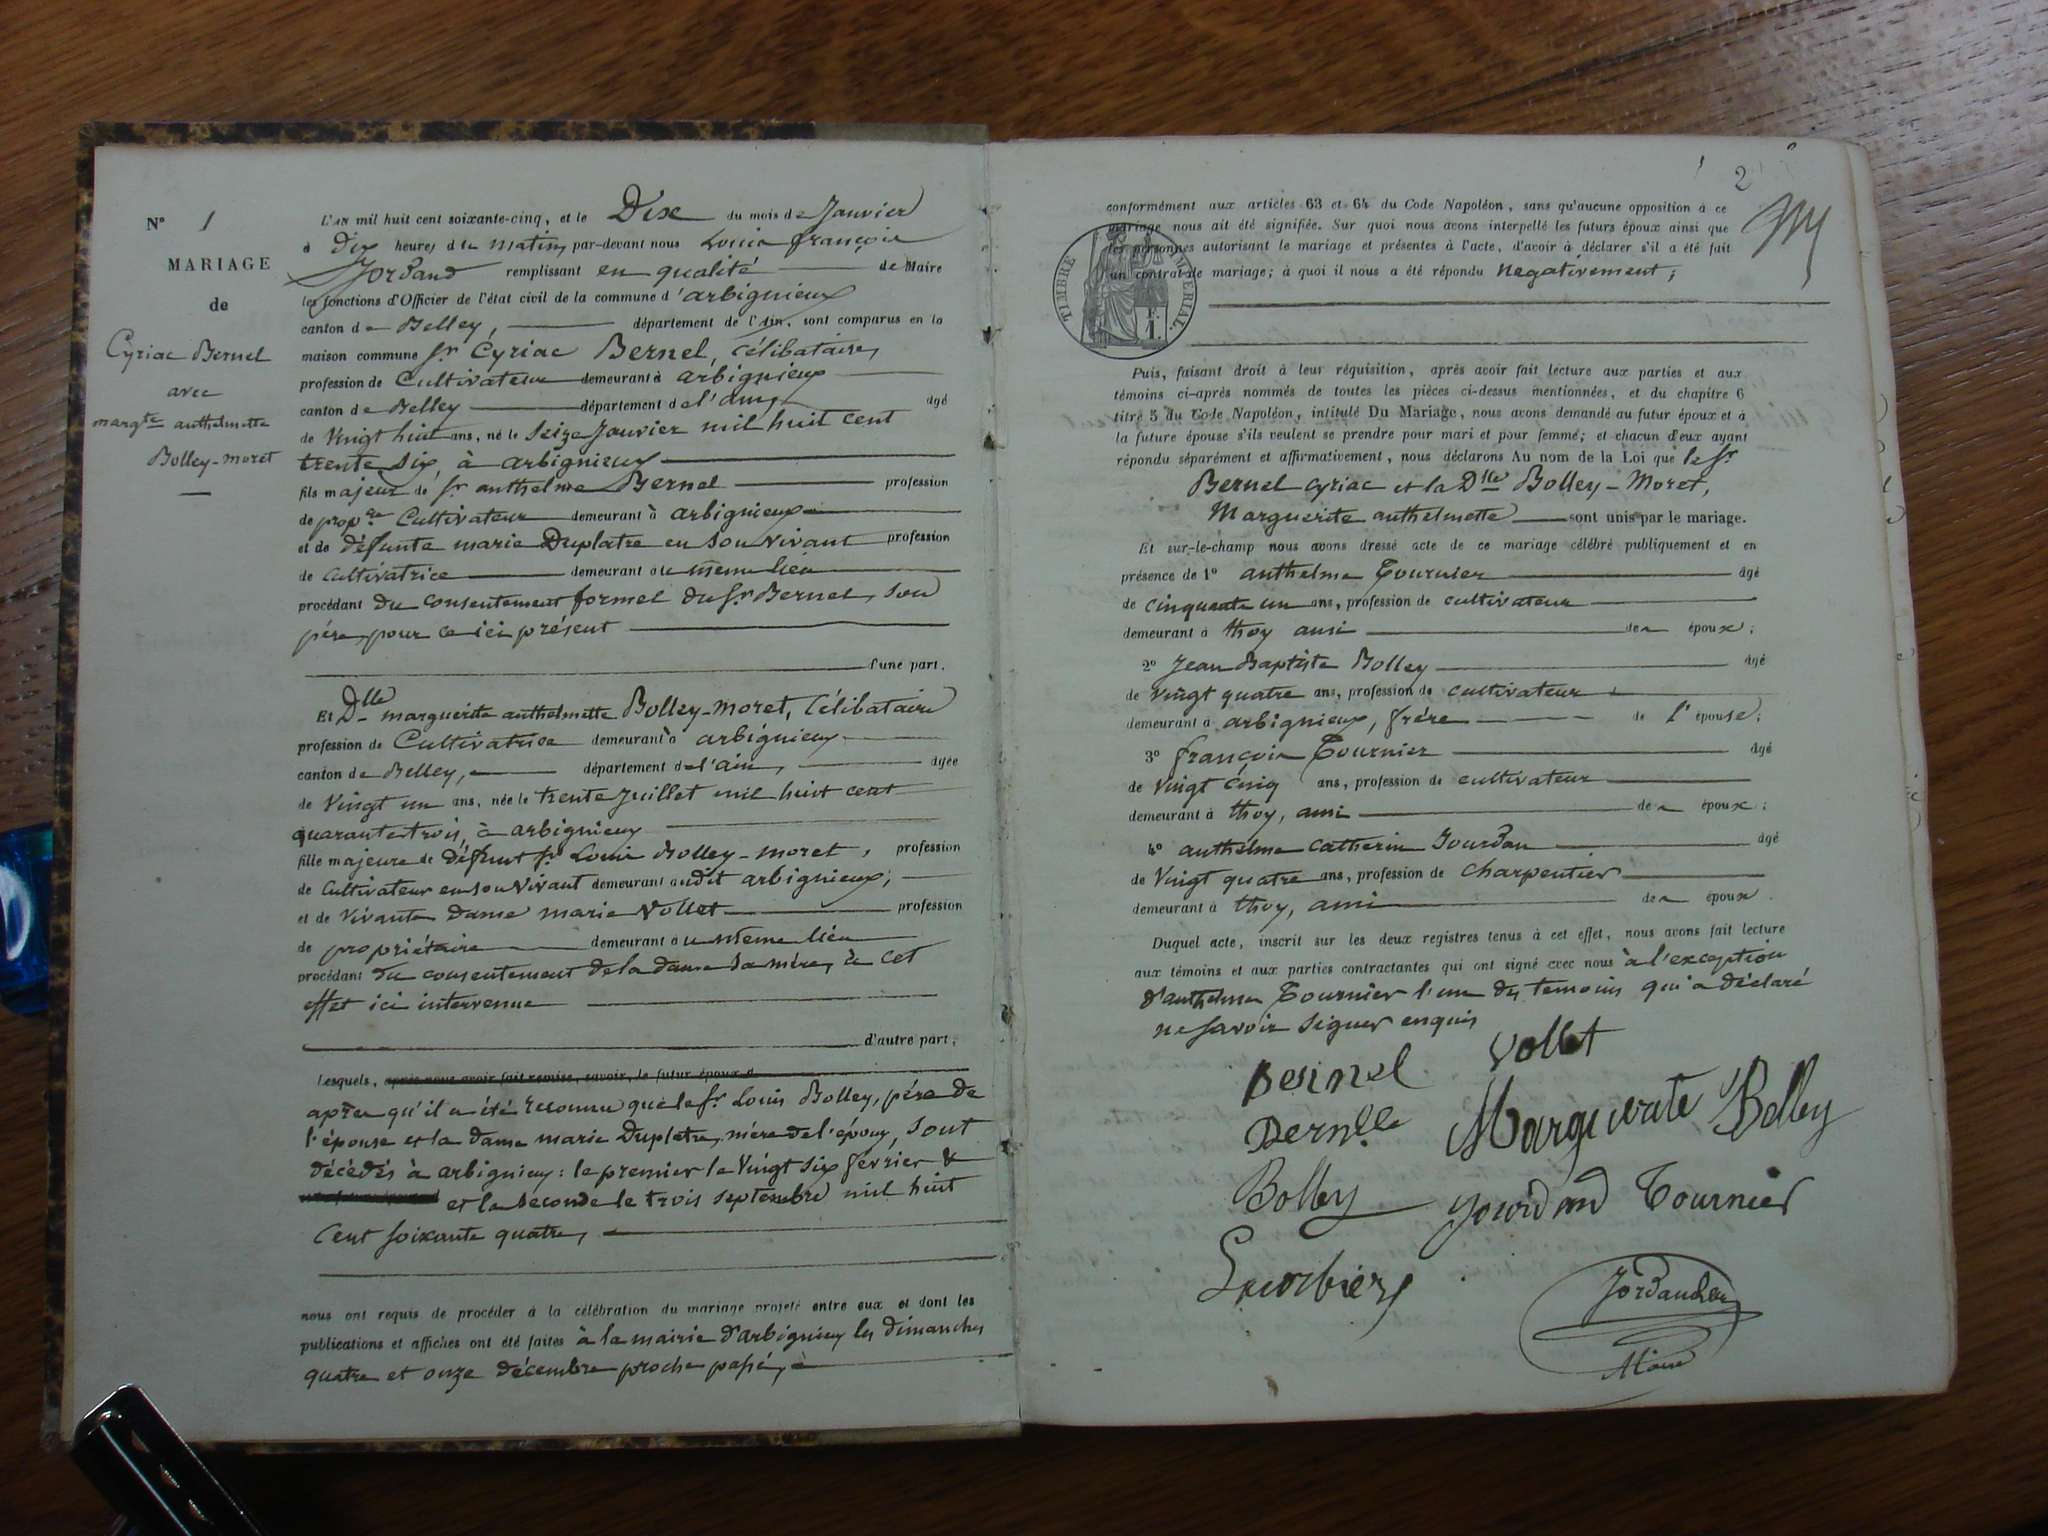 N° 1
MARIAGE
de
Cyriac Bernel
avec
margte anthelmette
Bolley-moret
L'AN mil huit cent soixante-cinq, et le Dix du mois de Janvier
à dix heures du matin, par-devant nous Louis françois
Jordand remplissant en qualité de Maire
les fonctions d'Officier de l'état civil de la commune d'arbignieux
canton de Belley, département de l'Ain, sont comparus en la
maison commune Sr Cyriac Bernel, Célibataire,
profession de Cultivateur demeurant à arbignieux
canton de Belley département de l'ain, âgé
de Vingt huit ans, né le Seize Janvier mil huit cent
trente six, à arbignieux
fils majeur de Sr anthelme Bernel profession
de propre Cultivateur demeurant à arbignieux
et de défunte marie Duplatre en son vivant profession
de Cultivatrice demeurant au même lieu
procédant du consentement formel du Sr Bernel, son
père, pour ce ici présent
d'une part.
Et Dlle marguerite anthelmette Bolley-moret, Célibataire
profession de Cultivatrice demeurant à arbignieux
canton de Belley, département de l'ain, âgée
de Vingt un ans, née le trente Juillet mil huit cent
quarante trois, à arbignieux
fille majeure de défunt Sr Louis Bolley-moret, profession
de Cultivateur en son vivant demeurant audit arbignieux;
et de Vivante dame marie Vollet profession
de propriétaire demeurant au même lieu
procédant du consentement de la dame sa mère, à cet
effet ici intervenue
d'autre part,
Lesquels, après nous avoir fait remise, savoir, le futur époux d
après qu'il a été reconnu que le Sr Louis Bolley, père de
l'épouse et la dame marie Duplatre, mère de l'époux, sont
décédés à arbignieux: le premier le vingt six février &
et la seconde le trois septembre mil huit
cent soixante quatre,
nous ont requis de procéder à la célébration du mariage projeté entre eux et dont les
publications et affiches ont été faites à la mairie d'arbignieux les dimanches
quatre et onze décembre proche passé,
2
conformément aux articles 63 et 64 du Code Napoléon, sans qu'aucune opposition à ce
mariage nous ait été signifiée. Sur quoi nous avons interpellé les futurs époux ainsi que
les personnes autorisant le mariage et présentes à l'acte, d'avoir à déclarer s'il a été fait
un contrat de mariage; à quoi il nous a été répondu negativement;
TIMBRE IMPÉRIAL.
F.
1.
Puis, faisant droit à leur réquisition, après avoir fait lecture aux parties et aux
témoins ci-après nommés de toutes les pièces ci-dessus mentionnées, et du chapitre 6
titre 5 du Code Napoléon, intitulé Du Mariage, nous avons demandé au futur époux et à
la future épouse s'ils veulent se prendre pour mari et pour femme; et chacun d'eux ayant
répondu séparément et affirmativement, nous déclarons Au nom de la Loi que le Sr
Bernel cyriac et la Dlle Bolley-Moret,
Marguerite anthelmette sont unis par le mariage.
Et sur-le-champ nous avons dressé acte de ce mariage célébré publiquement et en
présence de 1° anthelme Tournier âgé
de cinquante un ans, profession de cultivateur
demeurant à thoy ami de époux;
2° Jean Baptiste Bolley âgé
de vingt quatre ans, profession de cultivateur
demeurant à arbignieux, frère de l'épouse;
3° françois Tournier âgé
de vingt cinq ans, profession de cultivateur
demeurant à thoy, ami de époux;
4° anthelme Catherin Jourdan âgé
de Vingt quatre ans, profession de charpentier
demeurant à thoy, ami de époux.
Duquel acte, inscrit sur les deux registres tenus à cet effet, nous avons fait lecture
aux témoins et aux parties contractantes qui ont signé avec nous à l'exception
d'anthelme Tournier l'un des temoins qui a déclaré
ne savoir signer enquis
Bernel Vollet
Marguerate Bolley
Bolley Jourdand Tournier
Jordand
Maire